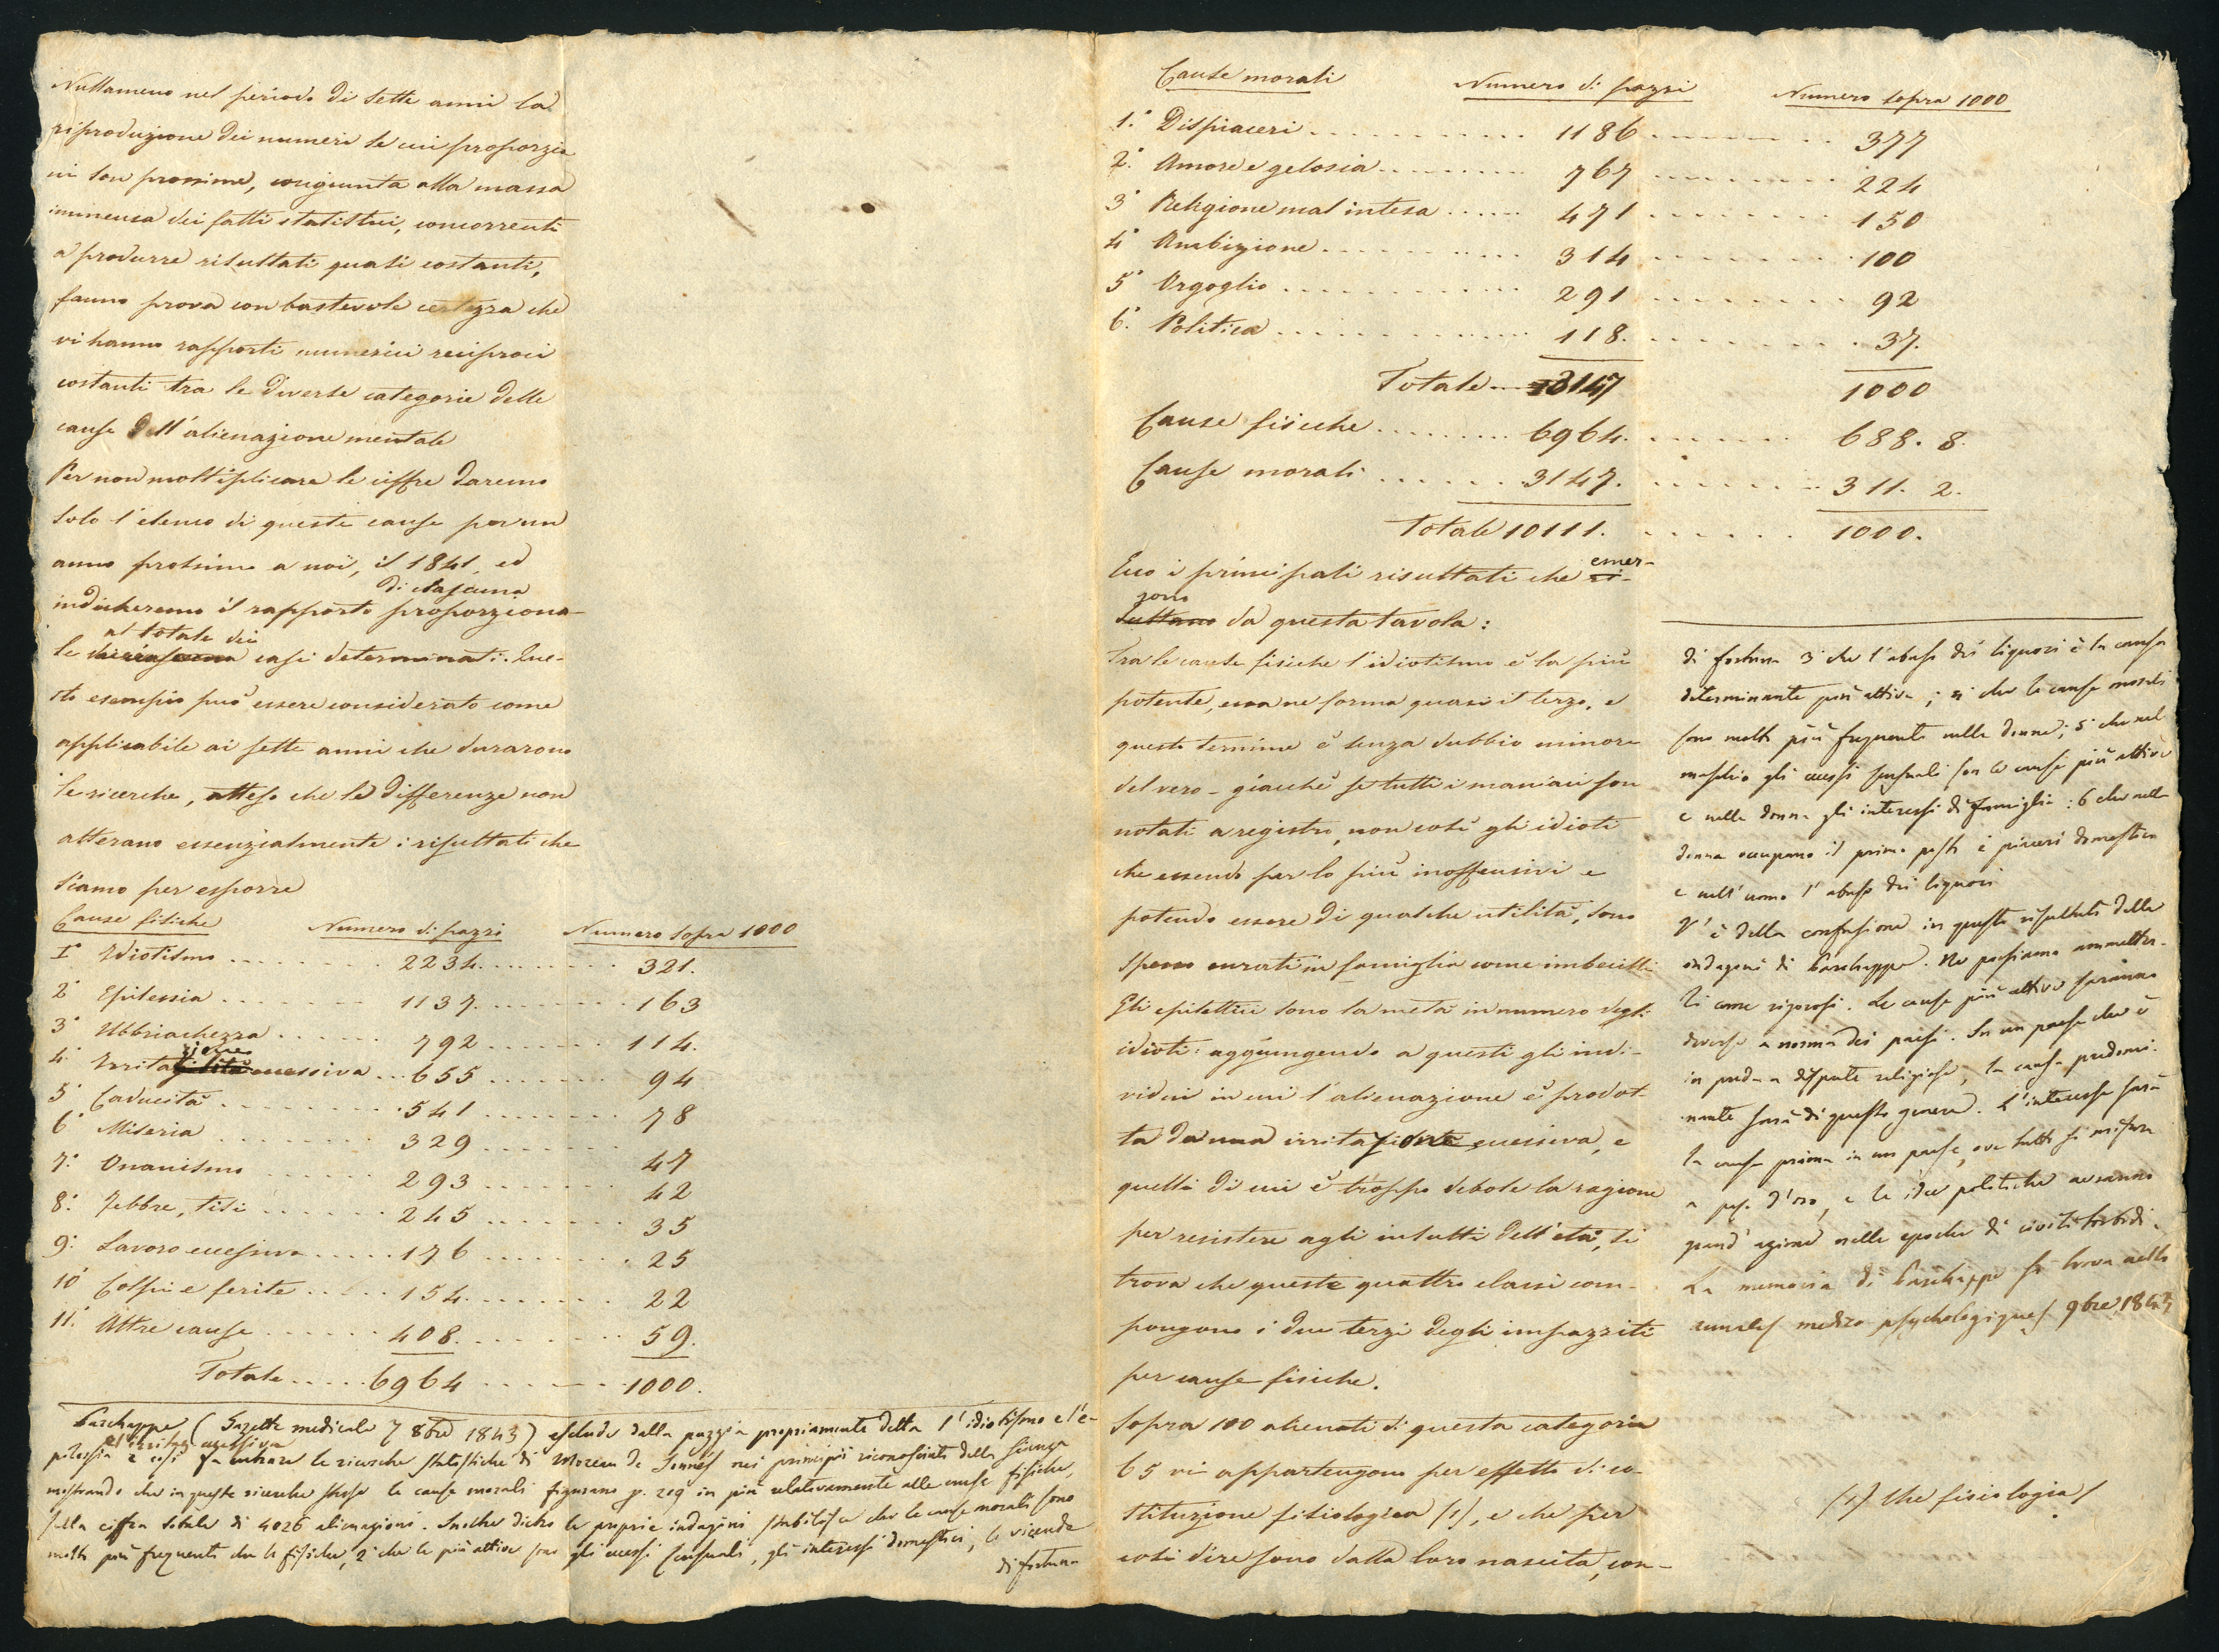 Nullameno nel periodo di sette anni la
riproduzione dei numeri le cui proporzio
ni son prossime, congiunta alla massa
immensa dei fatti statistici, concorrenti
a produrre risultati quasi costanti,
fanno prova con bastevole certezza che
vi hanno rapporti numerici reciproci
costanti tra le diverse categorie delle
cause dell'alienazione mentale
Per non moltiplicare le ciffre daremo
solo l'elenco di queste cause per un
anno prossimo a noi, il 1841, ed
di ciascuna
indicheremo il rapporto proporziona-
al totale dei
le casi determinati. Que-
sto esempio può essere considerato come
applicabile ai sette anni che durarono
le ricerche, atteso che le differenze non
alterano essenzialmente i risultati che
siamo per esporre
Cause fisiche Numero di pazzi Numero sopra 1000
1° Idiotismo 2234 321.
2° Epilessia 1137 163
3° Ubbriachezza 792 114.
zione
4° Irrita eccessiva 655 94
5° Caducità 541 78
6° Miseria 329 47
7° Onanismo 293 42
8° Febbre, tisi 245 35
9° Lavoro eccessivo 176 25
10° Colpi e ferite 154 22
11° Altre cause 408 59.
Totale 6964 1000.
Parchappe (Gazette medicale 7 8bre 1843) esclude dalla pazzia propriamente detta l'idiotismo e l'e-
e l'irritaz. eccessiva
pilessia e così fa entrare le ricerche statistiche di Moreau de Jonnès nei principii riconosciuti della scienza
mostrando che in queste ricerche stesse le cause morali figurano p. 219 in più relativamente alle cause fisiche,
sulla ciffra totale di 4026 alienazioni. Inoltre dietro le proprie indagini stabilisce che le cause morali sono
molto più frequenti che le fisiche, 2° che le più attive sono gli eccessi sensuali, gli interessi domestici, le vicende
di fortuna
Cause morali Numero di pazzi Numero sopra 1000
1.° Dispiaceri 1186 377
2.° Amore e gelosia 767 224
3° Religione mal intesa 471 150
4° Ambizione 314 100
5° Orgoglio 291 92
6.° Politica 118. 37.
Totale 3147 1000
Cause fisiche 6964. 688. 8.
Cause morali 3147. 311. 2.
Totale 10111. 1000.
emer-
Ecco i principali risultati che ri-
gono
sultano da questa tavola:
Tra le cause fisiche l'idiotismo è la più
potente, essa ne forma quasi il terzo, e
questo termine è senza dubbio minore
del vero - giacchè se tutti i maniaci son
notati a registro, non così gli idioti
che essendo per lo più inoffensivi e
potendo essere di qualche utilità, sono
spesso curati in famiglia come imbecilli
Gli epilettici sono la metà in numero degli
idioti: aggiungendo a questi gli indi-
vidui in cui l'alienazione è prodot-
ta da una irritazione eccessiva, e
quelli di cui è troppo debole la ragione
per resistere agli insulti dell'età, si
trova che queste quattro classi com-
pongono i due terzi degli impazziti
per cause fisiche.
Sopra 100 alienati di questa categoria
65 vi appartengono per effetto di co-
stituzione fisiologica (1), e che per
così dire sono dalla loro nascita, con-
di fortuna 3° che l'abuso dei liquori è la causa
determinante più attiva; 4° che le cause morali
sono molto più frequenti nelle donne; 5° che nel
maschio gli eccessi sensuali son le cause più attive
e nelle donne gli interessi di famiglia: 6 che nella
donna occupano il primo posto i piaceri domestici
e nell'uomo l'abuso dei liquori
V'è della confusione in questo risultato delle
indagini di Parchappe. Nè possiamo ammetter-
li come rigorosi. Le cause più attive saranno
diverse a norma dei paesi. In un paese che è
in preda a dispute religiose, la causa predomi-
nante sarà di questo genere. L'interesse sarà
la causa prima in un paese, ove tutto si misura
a peso d'oro, e le idee politiche avranno
grand'azione nelle epoche di civili torbidi.
La memoria di Parchappe si trova nelle
annales medico psychologiques 9bre 1843
(1) che fisiologia!